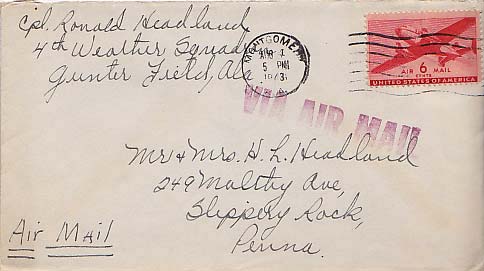 Cpl. Ronald Headland
4th Weather Squad
Gunter Field, Ala
MONTGOMERY
5 PM
AIR 6 MAIL
CENTS
UNITED STATES OF AMERICA
VIA AIR MAIL
Mr & Mrs. H. L. Headland
249 Malthy Ave,
Slippery Rock,
Penna.
Air Mail